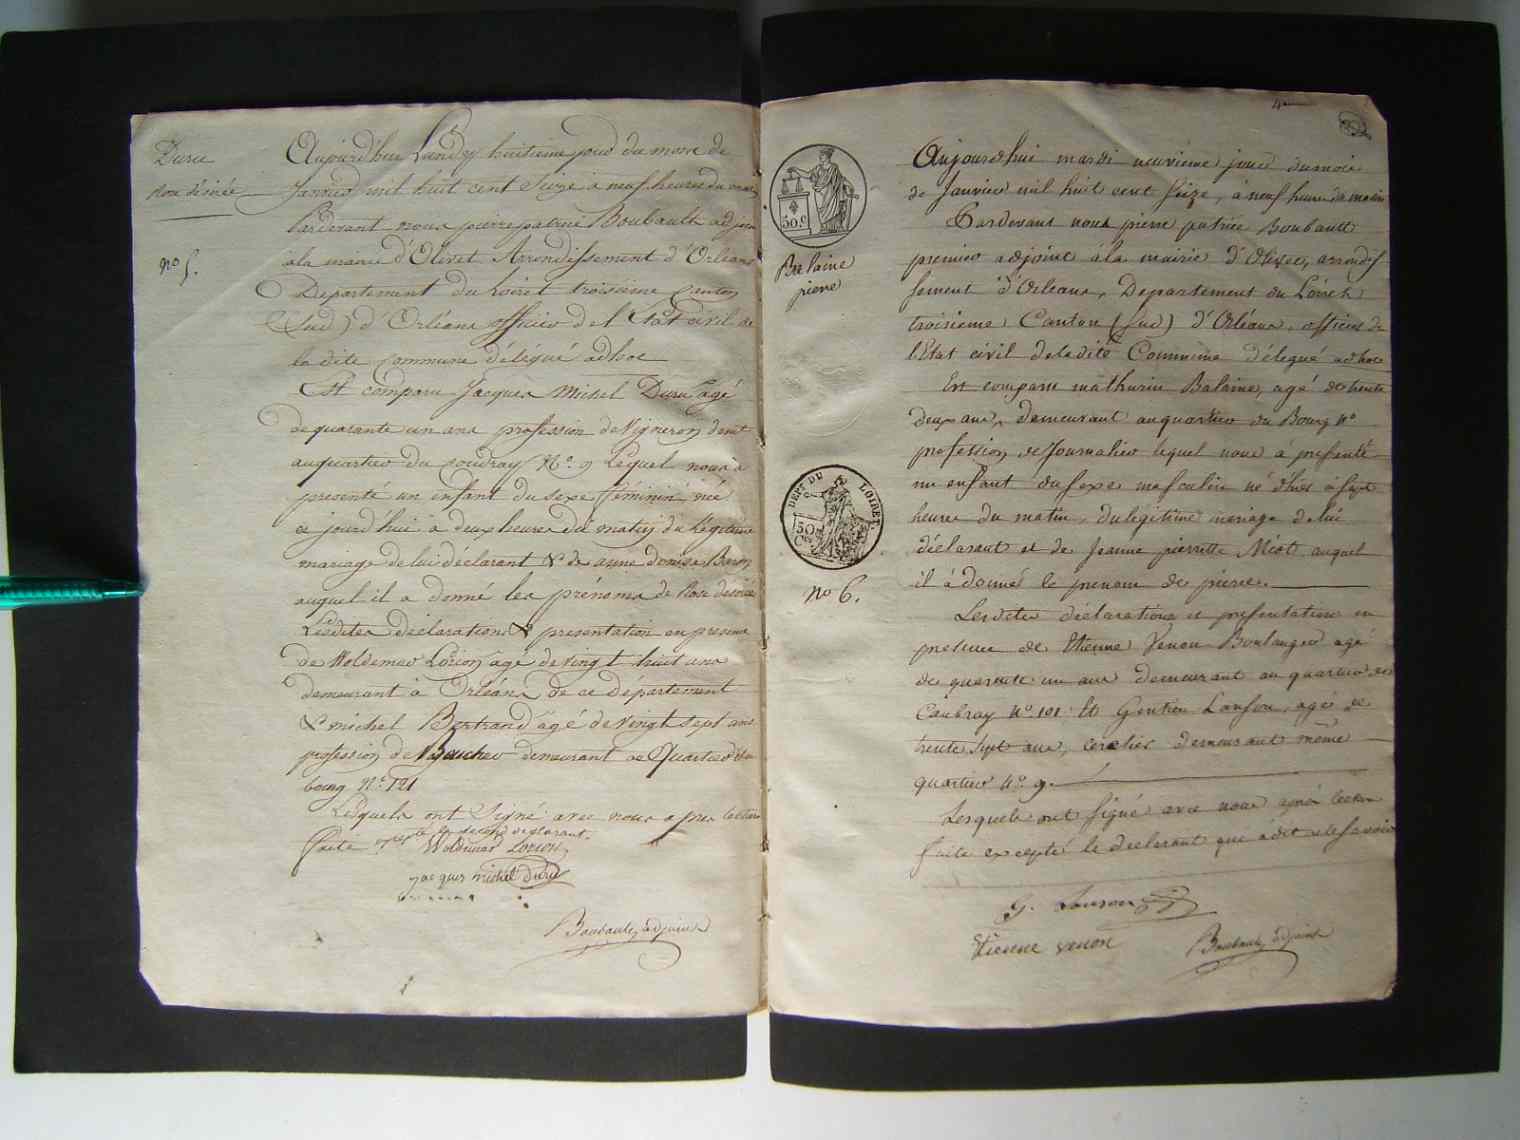 Duru
Rose désirée
nº 5.
Aujourdhui Lundy huitieme jour du mois de
Janvier mil huit cent Seize à neuf heures du matin
Pardevant nous pierre patrice Boubault adjoint
ala mairie d'Olivet Arrondissement d'Orléans
Département du Loiret troisieme Canton
(Sud) d'Orléans officier del'Etat civil de
la dite Commune délégué adhoc
Est comparu Jacques Michel Duru agé
de quarante un ans profession de Vigneron demt
auquartier du coudray Nº 9 Lequel nous a
présenté un enfant du sexe féminin née
ce jourd'hui à deux heures du matin du Légitime
mariage de lui déclarant & de anne denise Baron
auquel il a donné les prénoms de Rose désirée
Lesdites déclaration & présentation en présence
de Woldemar Lorion agé de vingt huit ans
demeurant à Orléans de ce département
& michel Bertrand agé de vingt sept ans
profession de Boucher demeurant ce Quartier du
bourg Nº 121
Lesquels ont Signé avec nous apres lecture
faite
Woldemar Lorion
jacques michel duru
Boubault, adjoint
4
50.c
Balaine
pierre
DEPT DU LOIRET.
50
C
nº 6.
Aujourdhui mardi neuvième jour dumois
de Janvier mil huit cent Seize, à neuf heure du matin
Pardevant nous pierre patrice Boubault
premier adjoint àla mairie d'Olivet, arrondis
sement d'Orleans, Departement du Loiret
troisieme Canton (Sud) d'Orléans, officier de
l'Etat civil deladite Commune délegué adhoc
Est comparu mathurin Balaine, agé de trente
deux ans, demeurant auquartier du Bourg nº
profession de Journalier lequel nous à présenté
un enfant du sexe masculin né d'hier à sept
heures du matin, dulégitime mariage delui
déclarant et de Jeanne pierrette Méot auquel
il à donné le prenom de pierre.
Lesdites déclarations et présentation en
présence de Etienne Venon Boulanger agé
de quarante un ans demeurant au quartier du
Caubray nº 101 Et Gentien Lanson, agé de
trente Sept ans, cerclier demeurant même
quartier nº 9.
Lesquels ont signé avec nous après lecture
faite excepté le déclarant qui à dit ne le savoir
Etienne venon
Boubault, adjoint